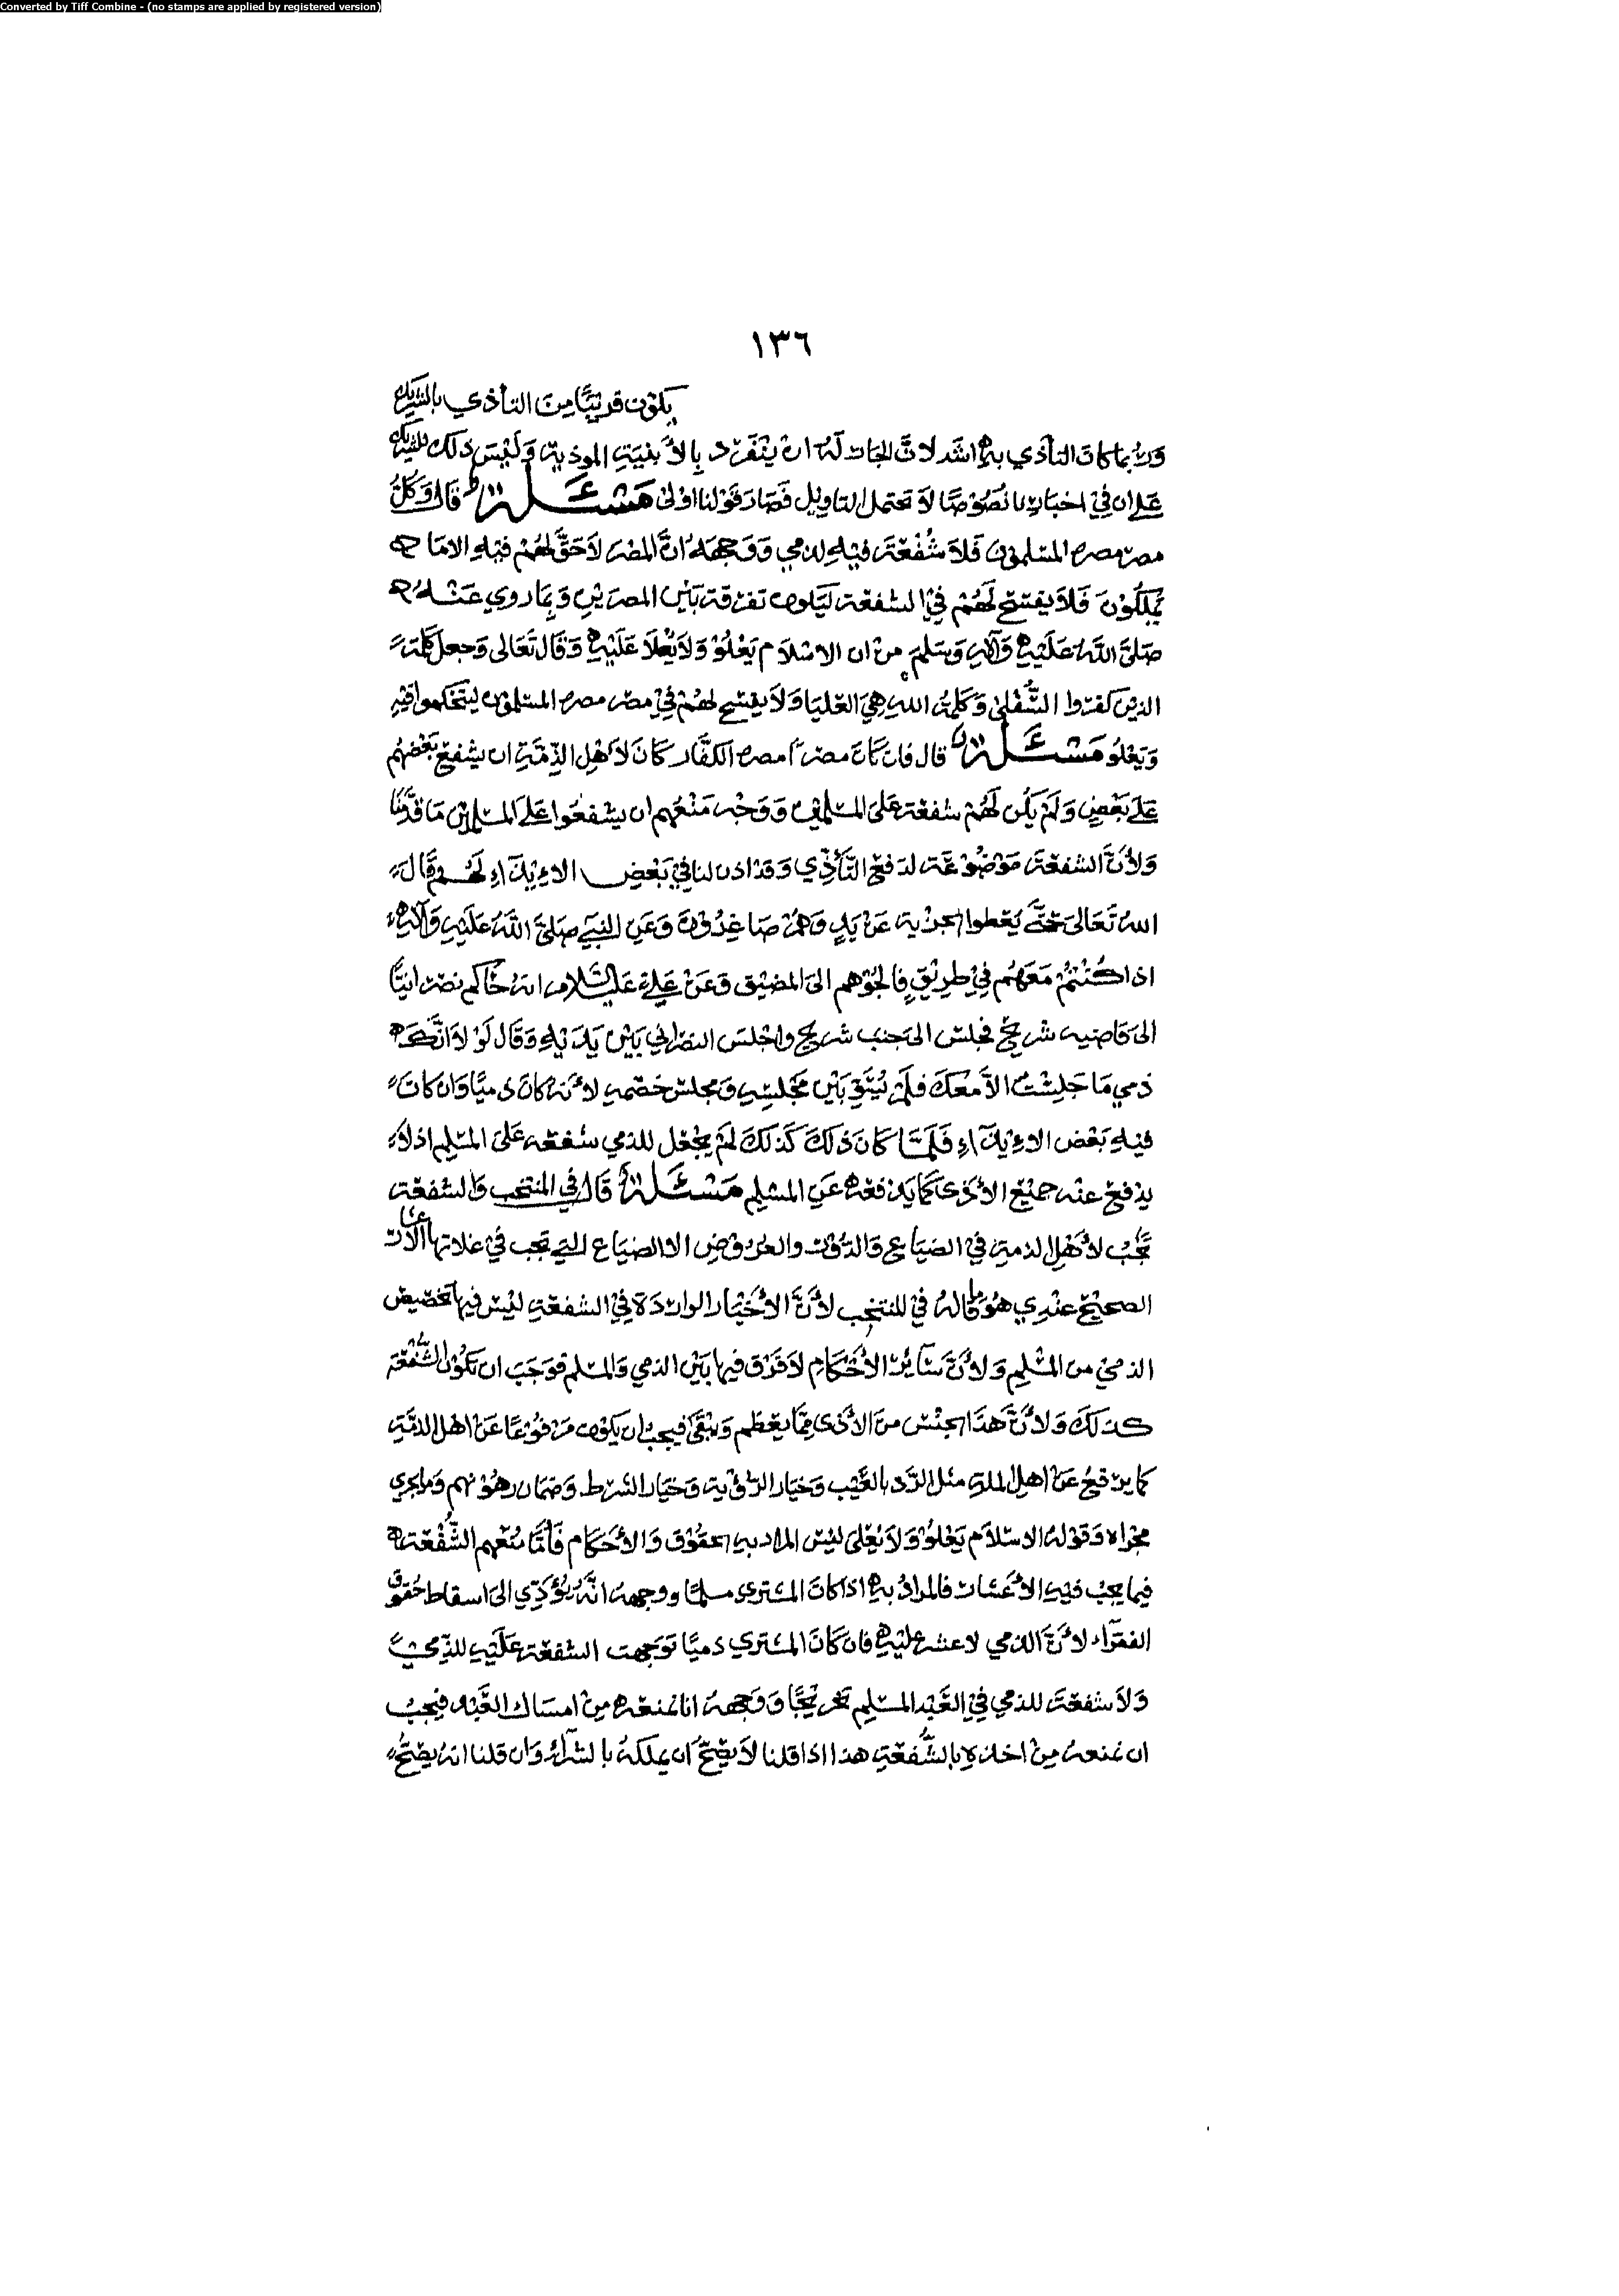 Converted by Tiff Combine - (no stamps are applied by registered version)
١٣٦
يكون قريبًا من التأذي بالشريك
وربما كان التأذي به اشد لان الجار له ان ينفرد بالأبنية الموذية وليس ذلك للشريك
على ان في اخبارنا نصوصًا لا تحتمل التاويل فصار قولنا اولى مسئلة قال وكل
مصر مصره المسلمون فلا شفعة فيه لذمي ووجهه انّ المصر لا حقّ لهم فيه الا ما
يملكون فلا يفتتح لهم في الشفعة ليكون تفرقة بين المصرين وبما روي عنه
صلى الله عليه وآله وسلم من ان الاسلام يعلو ولا يعلا عليه وقال تعالى وجعل كلمة
الذين كفروا السفلى وكلمة الله هي العليا ولا يفتتح لهم في مصر مصره المسلمون ليتحكموا فيه
ويعلو مسئلة قال فان كان مصراً مصره الكفّار كان لأهل الذّمّة ان يشفع بعضهم
على بعض ولم يكن لهم شفعة على المسلمين ووجه منعهم ان يشفعوا على المسلمين ما قدّمنا
ولأنّ الشفعة موضوعة لدفع التّأذّي وقد اذن لنا في بعض الاءيذآء لهم وقال
الله تعالى حتّى يعطوا الجزية عن يدٍ وهم صاغرون وعن النبي صلى الله عليه وآله
اذا كنتم معهم في طريقٍ فالجؤهم الى المضيق وعن علي عليه السلام انه حاكم نصرانيًّا
الى قاضيه شريح فجلس الى جنب شريح واجلس النصراني بين يديه وقال لو لا انّه
ذمي ما جلست الّا معك فلم يسوّ بين مجلسه ومجلس خصمه لأنه كان ذميًّا وان كان
فيه بعض الاءيذآء فلمّا كان ذلك كذلك لم يجعل للذمي شفعة على المسلم اذ لا
يدفع عنه جميع الأذى كما يدفعه عن المسلم مسئلة قال في المنتخب والشفعة
تجب لأهل الذمة في الضياع والدّور والعروض الا الضياع التي تجب في غلاتها الاعشار
الصحيح عندي هو ما قاله في المنتخب لأنّ الأخبار الواردة في الشفعة ليس فيها تخصيص
الذميّ من المسلم ولأنّ سآئر الأحكام لا فرق فيها بين الذمي والمسلم فوجب ان تكون الشّفعة
كذلك ولأنّ هذا الجنس من الأذى ممّا يعظم ويبقى فيجب ان يكون مرفوعًا عن اهل الذمّة
كما يرفع عن اهل الملة مثل الرّد بالعيب وخيار الرّؤية وخيار الشرط وضمان رهونهم وما جرى
مجراه وقوله الاسلام يعلو ولا يعلى ليس المراد به الحقوق والأحكام فأمّا منعهم الشّفعة
فيما يجب فيه الأعشار فالمراد به اذا كان المشتري مسلمًا ووجهه انّه يؤدّي الى اسقاط حقوق
الفقرآء لأنّ الذمي لا عشر عليه فان كان المشتري ذميًّا توجهت الشفعة عليه للذّميّ
ولا شفعة للذمي في العبد المسلم تخريجًا ووجهه انا نمنعه من امساك العبد فيجب
ان نمنعه من اخذه بالشّفعة هذا اذا قلنا لا يصحّ أن يملكه بالشرآء وان قلنا انه يصحّ